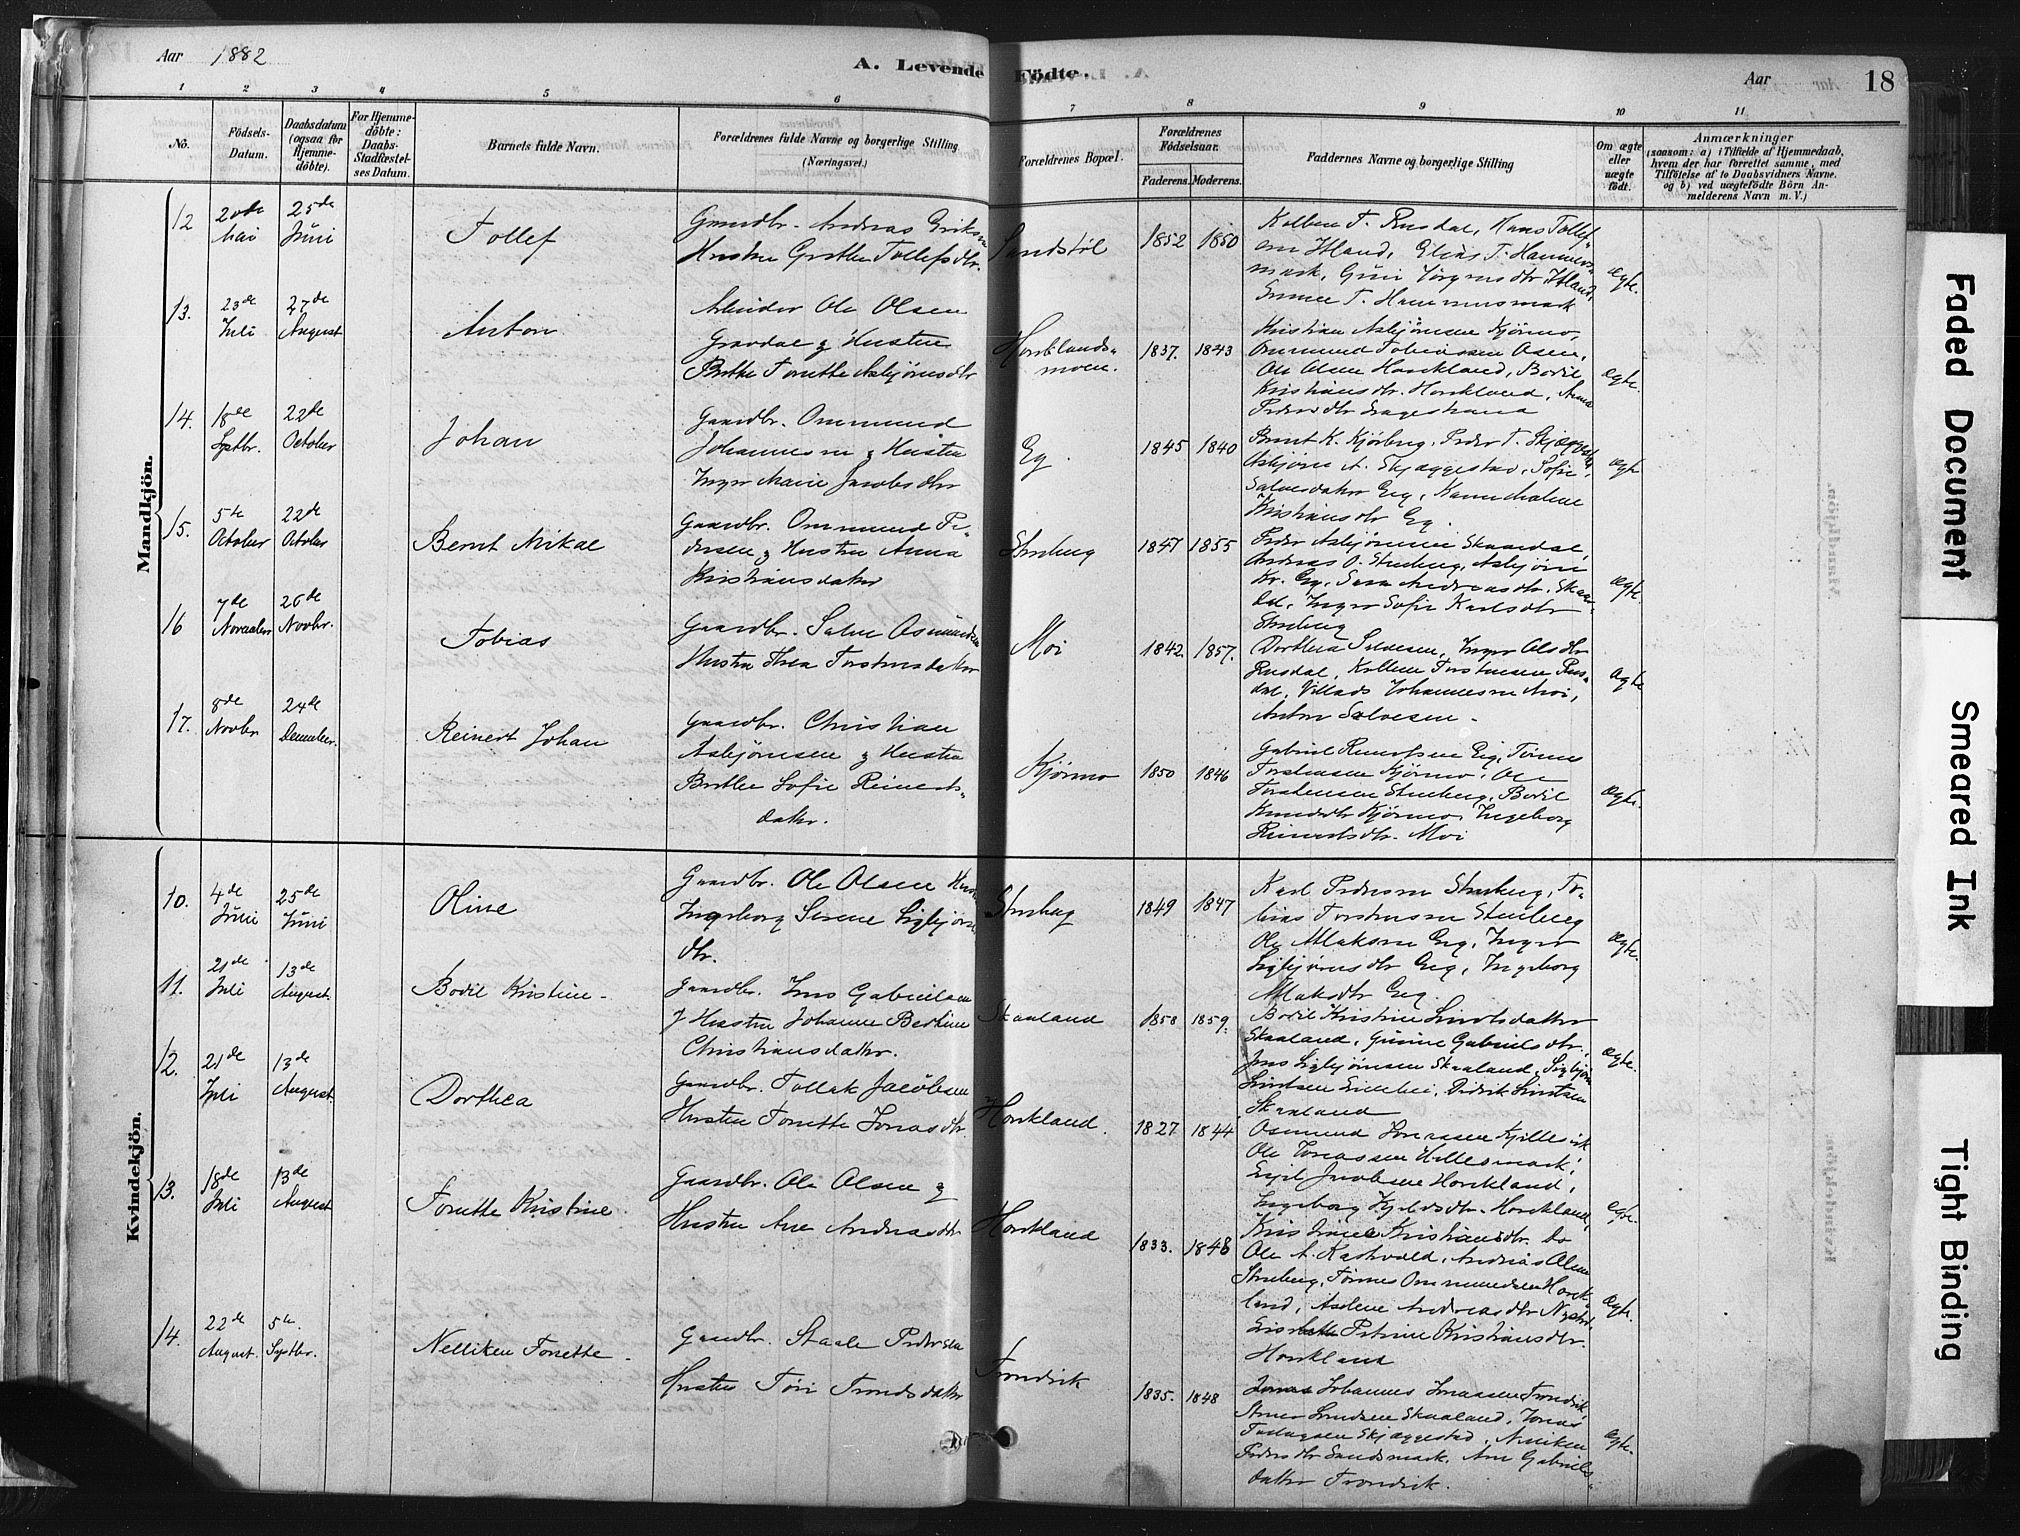 Aar 1882
A. Levende Födte.
Aar 18
1 2 3 4 5 6 7 8 9 10 11
No.
Födsels-
Datum.
Daabsdatum
(ogsaa for
Hjemme-
döbte).
For Hjemme-
döbte:
Daabs-
Stadfæstel-
ses Datum.
Barnets fulde Navn.
Forældrenes fulde Navne og borgerlige Stilling
(Næringsvei.)
Forældrenes Bopæl.
Forældrenes
Födselsaar.
Faderens. Moderens.
Faddernes Navne og borgerlige Stilling
Om ægte
eller
uægte
födt.
Anmærkninger
(saasom: a) i Tilfælde af Hjemmedaab,
hvem der har forrettet samme, med
Tilföielse af to Daabsvidners Navne,
og b) ved uægtefödte Börn An-
melderens Navn m. V.)
Mandkjön.
12
20de
Mai
25de
Juni
Tollef
Gaardbr. Andreas Eriksen
Hustru Grethe Tollefsdtr.
Sandstöl
1852 1850
Tollef-
Ægte.
13.
23de
Juli
27de
August
Anton
Arbeider Ole Olsen
Gravdal & Hustru
Berthe Tonette Asbjörnsdtr
Hovklands-
moen.
1837. 1843
Kristian Asbjörnsen Kjörmo,
Ommund Tobiassen Osen,
Ole Olsen Hovkland, Bodil
Kristiansdtr. Hovkland, Anna
Ægte.
14.
18de
Septbr.
22de
October
Johan
Gaardbr. Ommund
Johannesen & Hustru
Inger Marie Jacobsdtr
Eg.
1845 1840
Asbjörn A. Skjæggestad, Sofie
Salvesdatter Eeg, Karen Malene
Kristiansdtr Eg.
Ægte
15.
5te
October
22de
October
Bernt Mikal
Gaardbr. Ommund Pe-
dersen & Hustru Anna
Kristiansdatter
Stenberg
1847 1855
Peder Asbjörnsen Skaardal,
Andreas O. Stenberg, Asbjörn
Kr. Eg, Sara Andreasdtr. Skaar-
dal, Inger Sofie Karlsdtr
Stenberg
Ægte.
16
7de
November
26de
Novbr.
Tobias
Gaardbr. Salve Osmundsen
Hustru Thea Torstensdatter
Moi
1842. 1857.
Dorthea Salvesen, Inger Olsdtr
Rusdal, Kolben Torstensen Rus-
dal, Villads Johannesen Moi,
Anton Salvesen.
Ægte
17.
8de
Novbr
24de
December.
Reinert Johan
Gaardbr. Christian
Asbjörnsen & Hustru
Berthe Sofie Reinerts-
datter.
Kjörmo
1850 1846
Torstensen Kjörmo, Ole
Torstensen Stenberg, Bodil
Knudsdtr Kjörmo, Ingeborg
Reinertsdtr. Moi
Ægte.
Kvindekjön.
10.
4de
Juni
25de
Juni
Oline
Gaardbr. Ole Olsen Hustru
Ingeborg Serene Sigbjörns-
dtr.
Stenberg
1849 1847
Karl Pedersen Stenberg, To-
bias Torstensen Stenberg
Ole Aslaksen Eeg, Inger
Sigbjörnsdtr Eeg, Ingeborg
Aslaksdtr Eeg.
Ægte.
11.
21de
Juli
13de
August.
Bodil Kristine
Gaardbr. Jens Gabrielsen
& Hustru Johanne Bertine
Christiansdatter.
Skaaland
1858 1859.
Bodil Kristine Sivertsdatter
Skaaland, Gurine Gabrielsdtr.,
Jens Sigbjörnsen Skaaland, Sigbjörn
Skaaland
Ægte.
12.
21de
Juli
13de
August.
Dorthea
Gaardbr. Tollak Jacobsen
Hustru Tonette Jonasdtr.
Hovkland.
1827 1844
Ole Jonassen
Jacobsen Hovkland,
Ingeborg Kjeldsdtr. Hovkland,
Kristiansdtr. Do
Ægte.
13.
18de
Juli
13de
August
Tonette Kristine
Gaardbr. Ole Olsen &
Hustru Ane Andreasdtr
Hovkland
1833. 1848
Andreas Olsen
Stenberg, Tönnes Ommundsen Hovk-
land, Aslene Andreasdtr
Petrine Kristiansdtr.
Hovkland
Ægte.
14.
22de
August.
5te
Septbr.
Nelliken Tonette
Gaardbr. Staale Pedersen
Hustru Töri Trondsdatter
Trondvik
1835. 1848
Johannes Jonassen Trondvik
Skaaland, Jonas
Skjæggestad, Nelliken
Pedersdtr Sandsmark, Ane Gabriels-
datter Trondvik.
Ægte.
Faded Document
Smeared Ink
Tight Binding